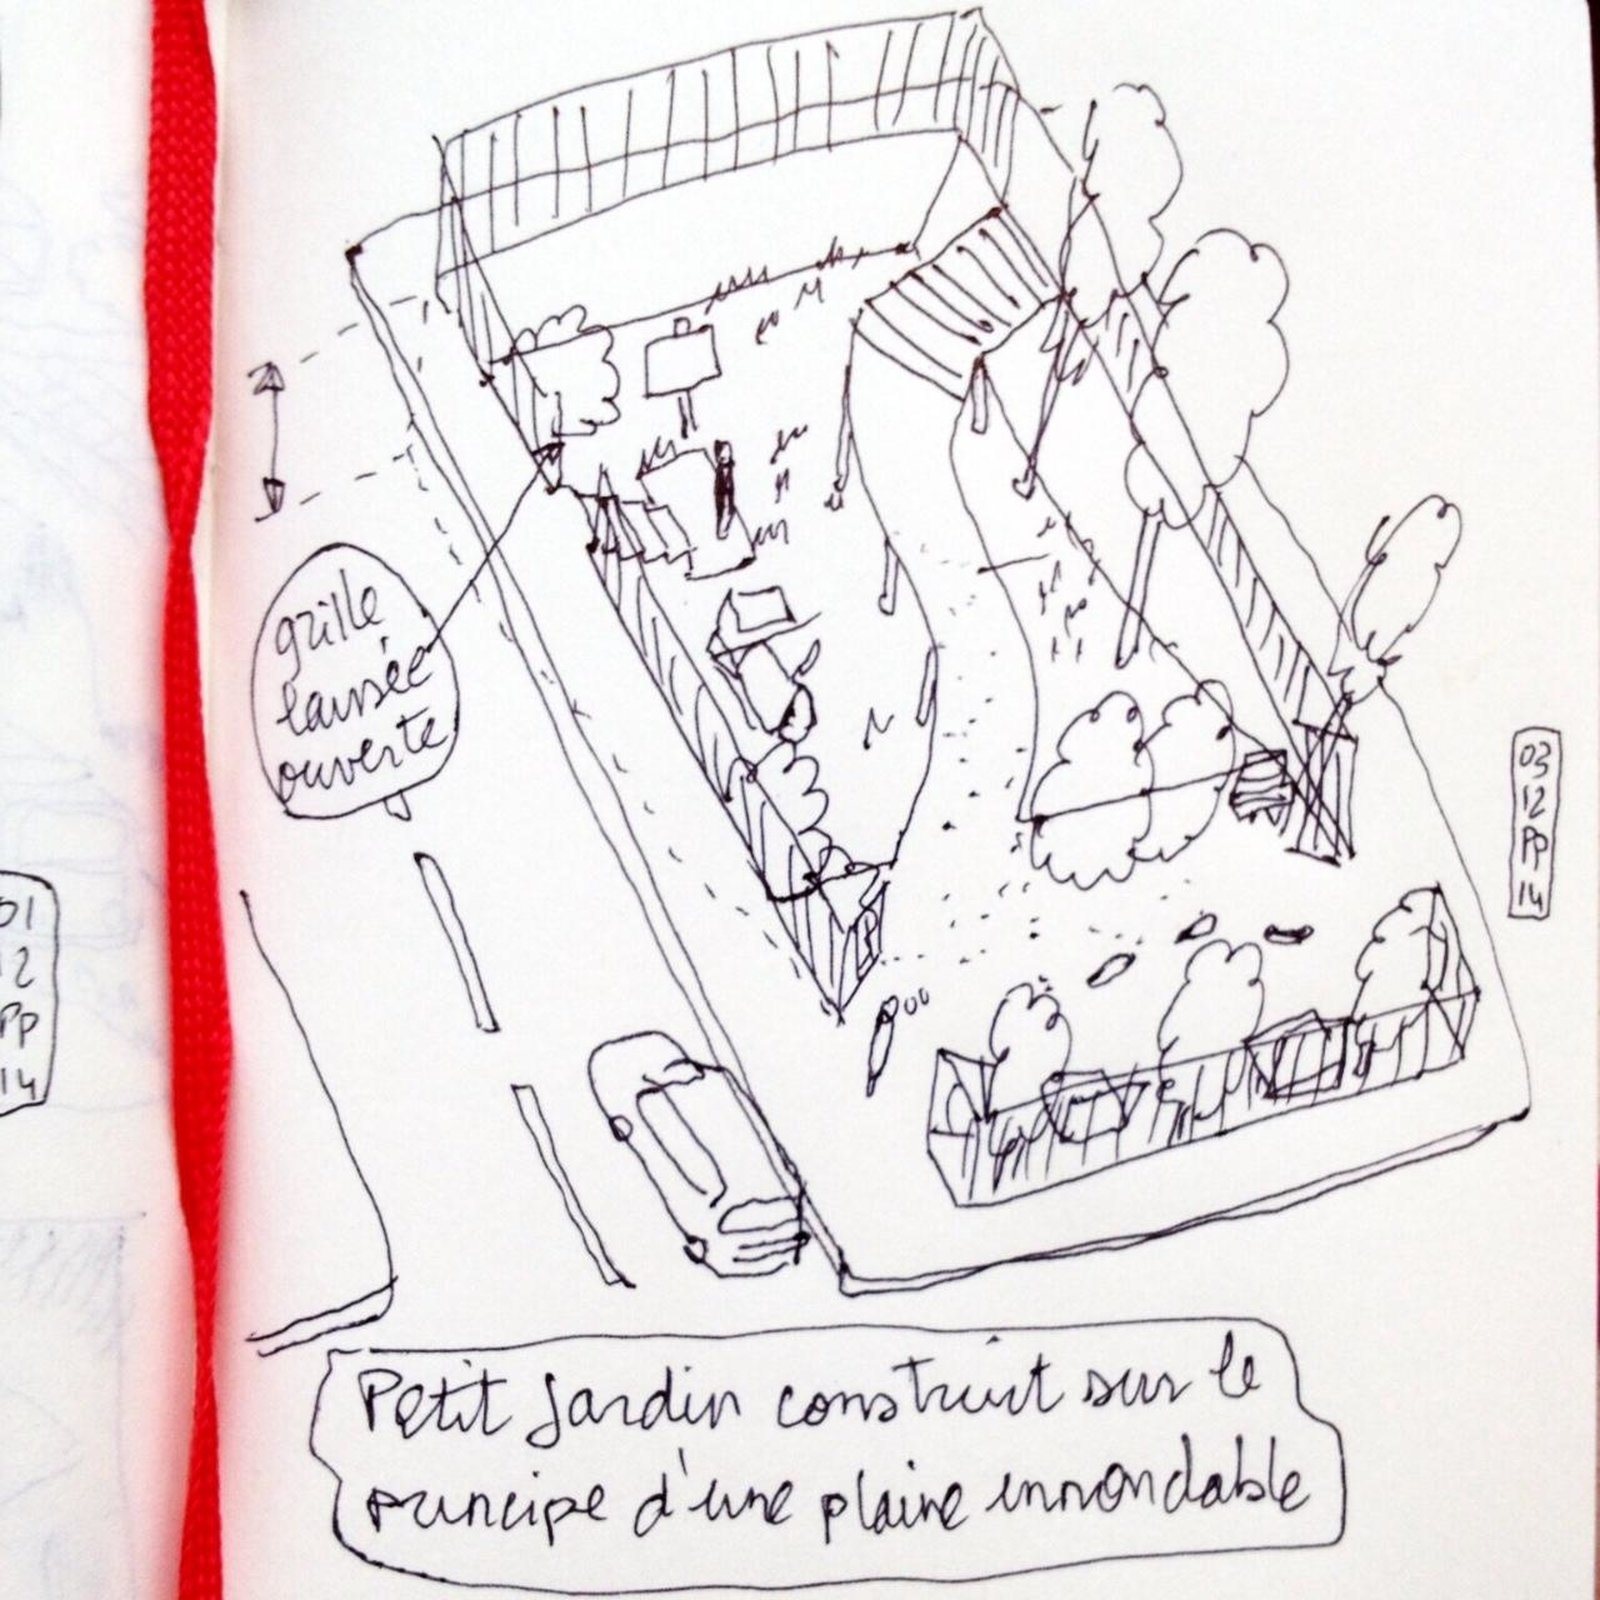 grille
laissée
ouverte
03
12
Pp
14
01
12
Pp
14
P
Petit Jardin construit sur le
principe d'une plaine innondable